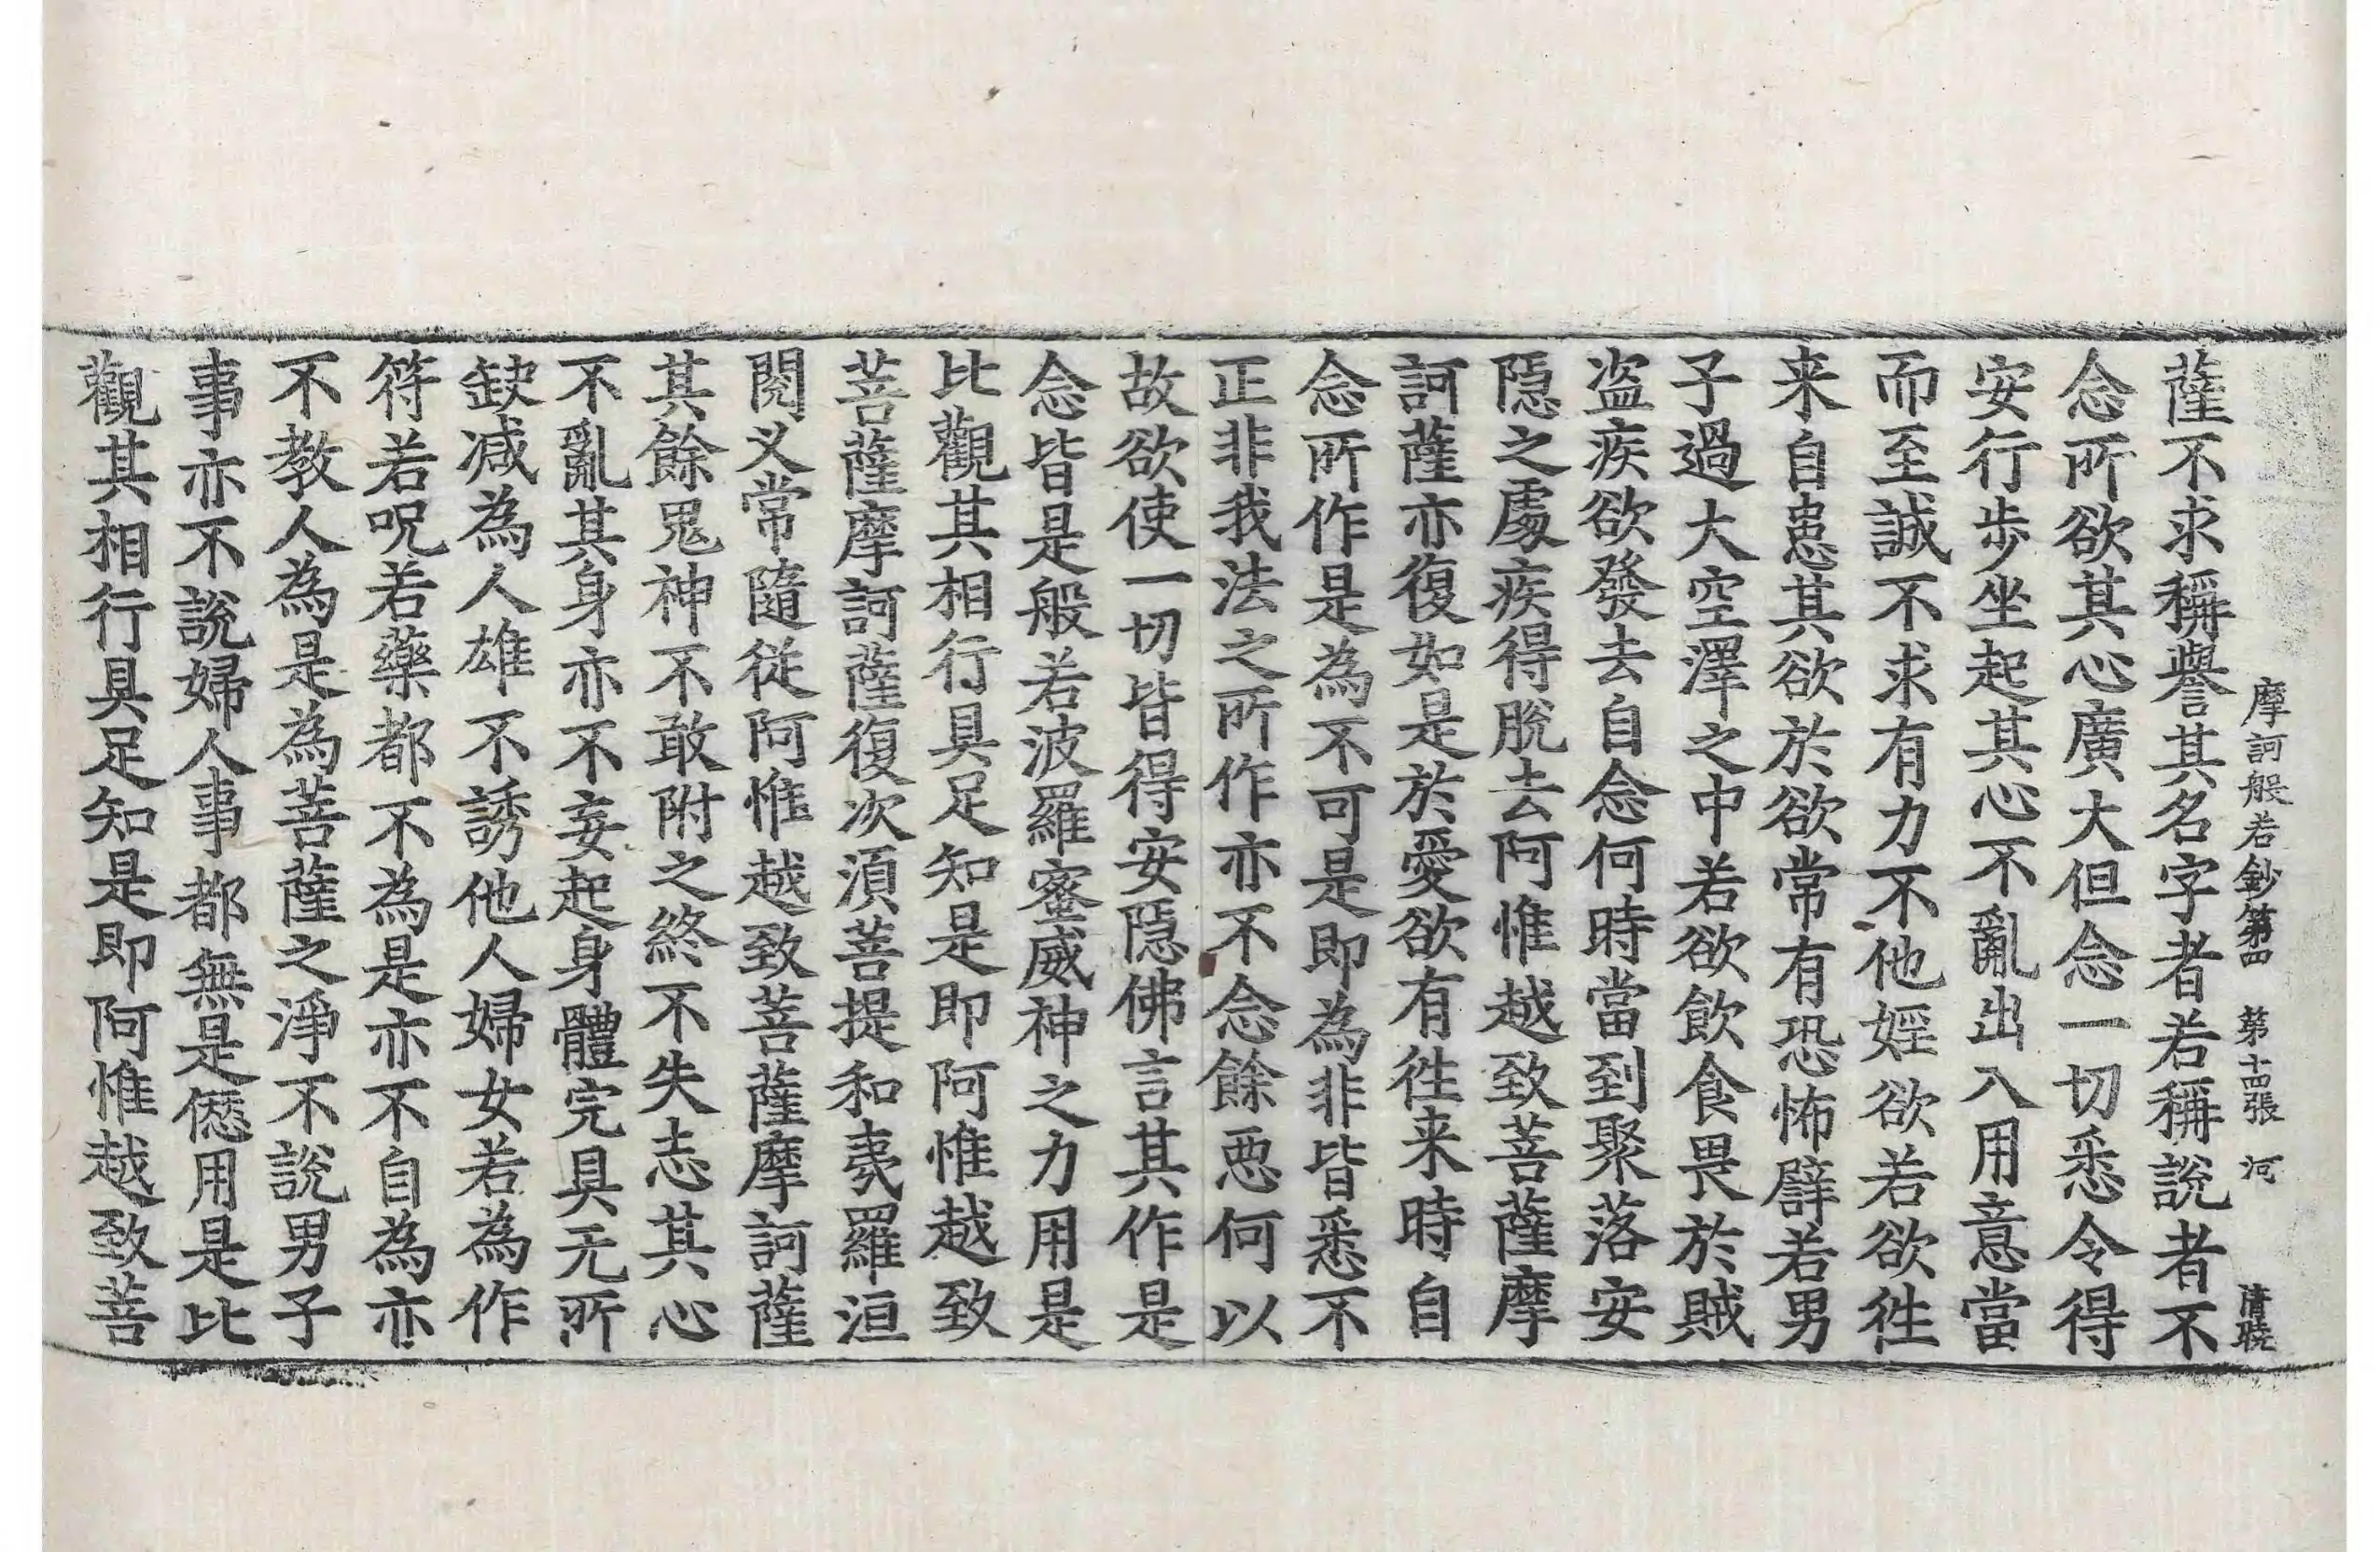 摩訶般若鈔第四　第十四張　河　清曉
薩不求稱譽其名字者若稱說者不
念所欲其心廣大但念一切悉令得
安行步坐起其心不亂出入用意當
而至誠不求有力不他婬欲若欲徃
来自患其欲於欲常有恐怖臂若男
子過大空澤之中若欲飲食畏於賊
盜疾欲發去自念何時當到聚落安
隱之處疾得脫去阿惟越致菩薩摩
訶薩亦復如是於愛欲有徃来時自
念所作是為不可是即為非皆悉不
正非我法之所作亦不念餘惡何以
故欲使一切皆得安隱佛言其作是
念皆是般若波羅蜜威神之力用是
比觀其相行具足知是即阿惟越致
菩薩摩訶薩復次湏菩提和夷羅洹
閱叉常隨從阿惟越致菩薩摩訶薩
其餘鬼神不敢附之終不失志其心
不亂其身亦不妄起身體完具无所
缺减為人雄不誘他人婦女若為作
符若呪若藥都不為是亦不自為亦
不教人為是為菩薩之淨不說男子
事亦不說婦人事都無是僁用是比
觀其相行具足知是即阿惟越致菩